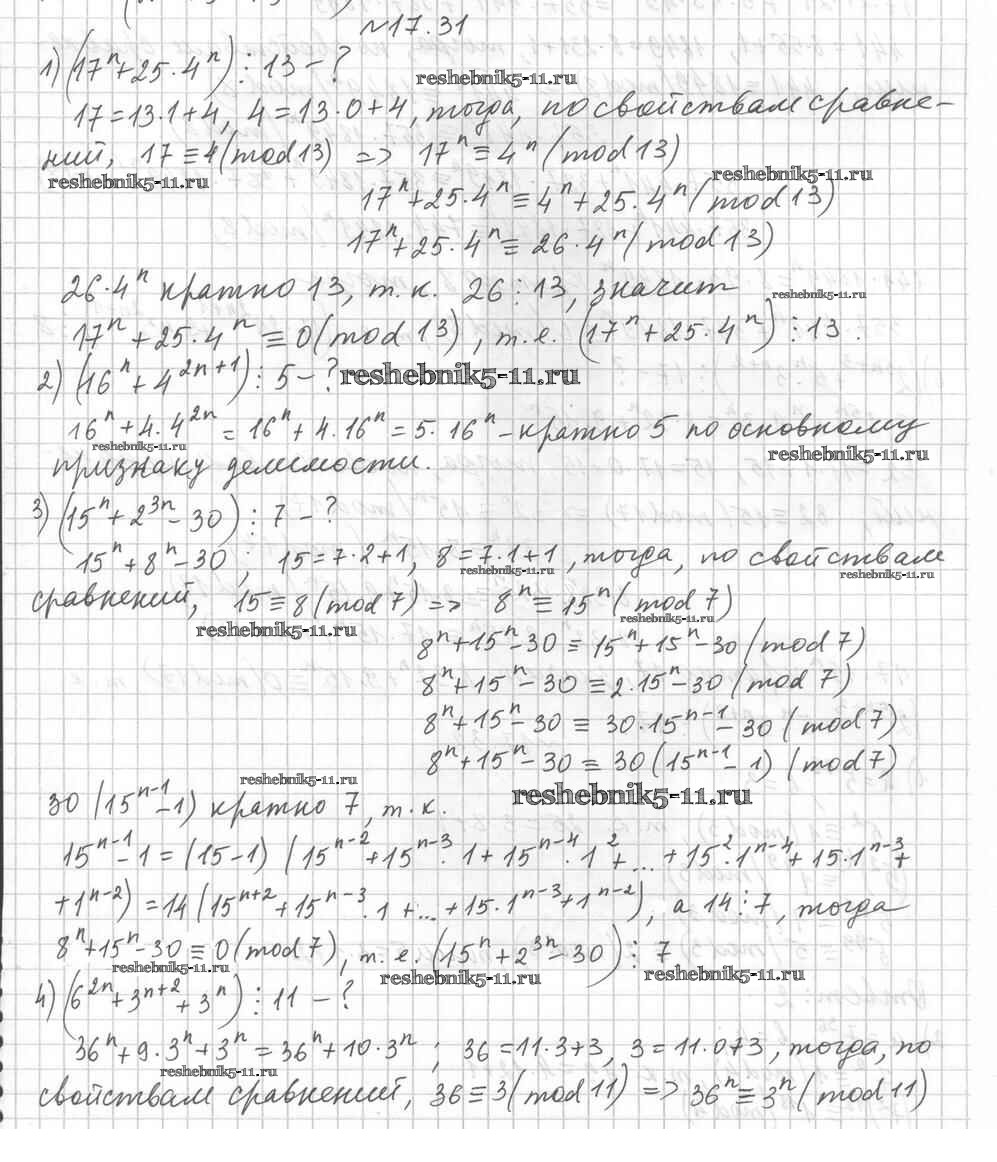 №17.31
1) (17ⁿ+25·4ⁿ)⋮13 – ?
reshebnik5-11.ru
17=13·1+4, 4=13·0+4, тогда, по свойствам сравне-
ний, 17≡4(mod13) => 17ⁿ≡4ⁿ(mod13)
reshebnik5-11.ru reshebnik5-11.ru
17ⁿ+25·4ⁿ≡4ⁿ+25·4ⁿ(mod13)
17ⁿ+25·4ⁿ≡26·4ⁿ(mod13)
26·4ⁿ кратно 13, т.к. 26⋮13, значит
reshebnik5-11.ru
17ⁿ+25·4ⁿ≡0(mod13), т.е. (17ⁿ+25·4ⁿ)⋮13.
2) (16ⁿ+4²ⁿ⁺¹)⋮5 – ?
reshebnik5-11.ru
16ⁿ+4·4²ⁿ=16ⁿ+4·16ⁿ=5·16ⁿ – кратно 5 по основному
reshebnik5-11.ru reshebnik5-11.ru
признаку делимости.
3) (15ⁿ+2³ⁿ-30)⋮7 – ?
15ⁿ+8ⁿ-30; 15=7·2+1, 8=7·1+1, тогда, по свойствам
reshebnik5-11.ru reshebnik5-11.ru
сравнений, 15≡8(mod7) => 8ⁿ≡15ⁿ(mod7)
reshebnik5-11.ru reshebnik5-11.ru
8ⁿ+15ⁿ-30≡15ⁿ+15ⁿ-30(mod7)
8ⁿ+15ⁿ-30≡2·15ⁿ-30(mod7)
8ⁿ+15ⁿ-30≡30·15ⁿ⁻¹-30(mod7)
8ⁿ+15ⁿ-30≡30(15ⁿ⁻¹-1)(mod7)
reshebnik5-11.ru reshebnik5-11.ru
30(15ⁿ⁻¹-1) кратно 7, т.к.
15ⁿ⁻¹-1=(15-1)(15ⁿ⁻²+15ⁿ⁻³·1+15ⁿ⁻⁴·1²+...+15²·1ⁿ⁻⁴+15·1ⁿ⁻³+
+1ⁿ⁻²)=14(15ⁿ⁺²+15ⁿ⁻³·1+...+15·1ⁿ⁻³+1ⁿ⁻²), а 14⋮7, тогда
8ⁿ+15ⁿ-30≡0(mod7), т.е. (15ⁿ+2³ⁿ-30)⋮7
reshebnik5-11.ru reshebnik5-11.ru reshebnik5-11.ru
4) (6²ⁿ+3ⁿ⁺²+3ⁿ)⋮11 – ?
36ⁿ+9·3ⁿ+3ⁿ=36ⁿ+10·3ⁿ; 36=11·3+3, 3=11·0+3, тогда, по
reshebnik5-11.ru
свойствам сравнений, 36≡3(mod11) => 36ⁿ≡3ⁿ(mod11)